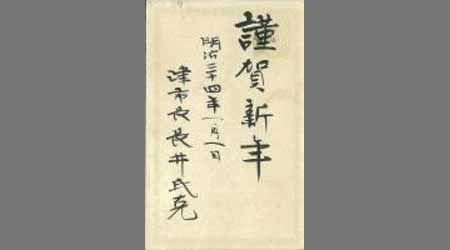 謹賀新年
明治三十四年一月一日
津市長長井氏克